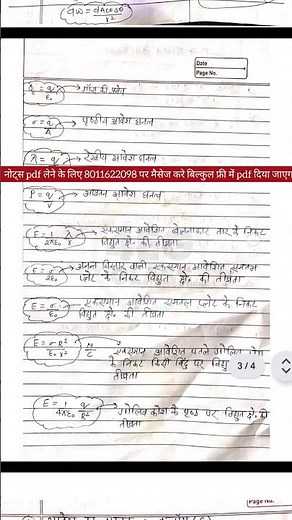 dω = dA cosθ / r²
Date
Page No.
φ = q/ε₀ → गॉस की प्रमेय
σ = q/A → पृष्ठीय आवेश घनत्व
λ = q/ → रेखीय आवेश घनत्व
नोट्स pdf लेने के लिए 8011622098 पर मैसेज करे बिल्कुल फ्री में pdf दिया जाएग
ρ = q/V → आयतन आवेश घनत्व
E = 1/2πε₀ λ/r → एकसमान आवेशित बेलनाकार तार के निकट
विद्युत क्षे. की तीव्रता
E = σ/2ε₀ → अनन्त विस्तार वाली एकसमान आवेशित समतल
प्लेट के निकट विद्युत क्षे. की तीव्रता
E = σ/ε₀ → एकसमान आवेशित समतल प्लेट के निकट
विद्युत क्षे. की तीव्रता
E = σR²/ε₀r² N/C → एकसमान आवेशित पतले गोलिय
के निकट किसी बिंदु पर विद्यु
3 / 4
तीव्रता
E = 1/4πε₀ q/R² → गोलिय कोश के पृष्ठ पर विद्युत क्षे. की
तीव्रता
Page No.